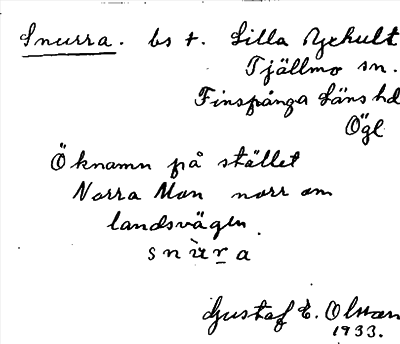 Snurra. bs t. Lilla Bjekult
Tjällmo sn.
Finspånga Läns hd
Ögl
Öknamn på stället
Norra Mon norr om
landsvägen.
snu̇r̲a
Gustaf E. Olsson
1933.